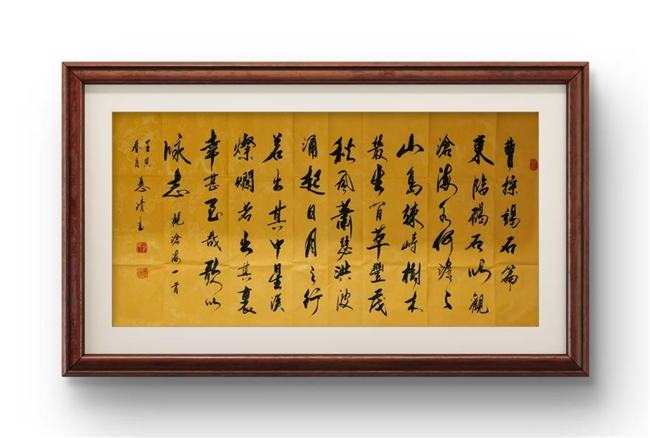 曹操碣石篇
東臨碣石以觀
滄海水何澹々
山島竦峙樹木
叢生百草豐茂
秋風蕭瑟洪波
涌起日月之行
若出其中星漢
燦爛若出其裏
幸甚至哉歌以
詠志
觀滄海一首
壬寅
春月